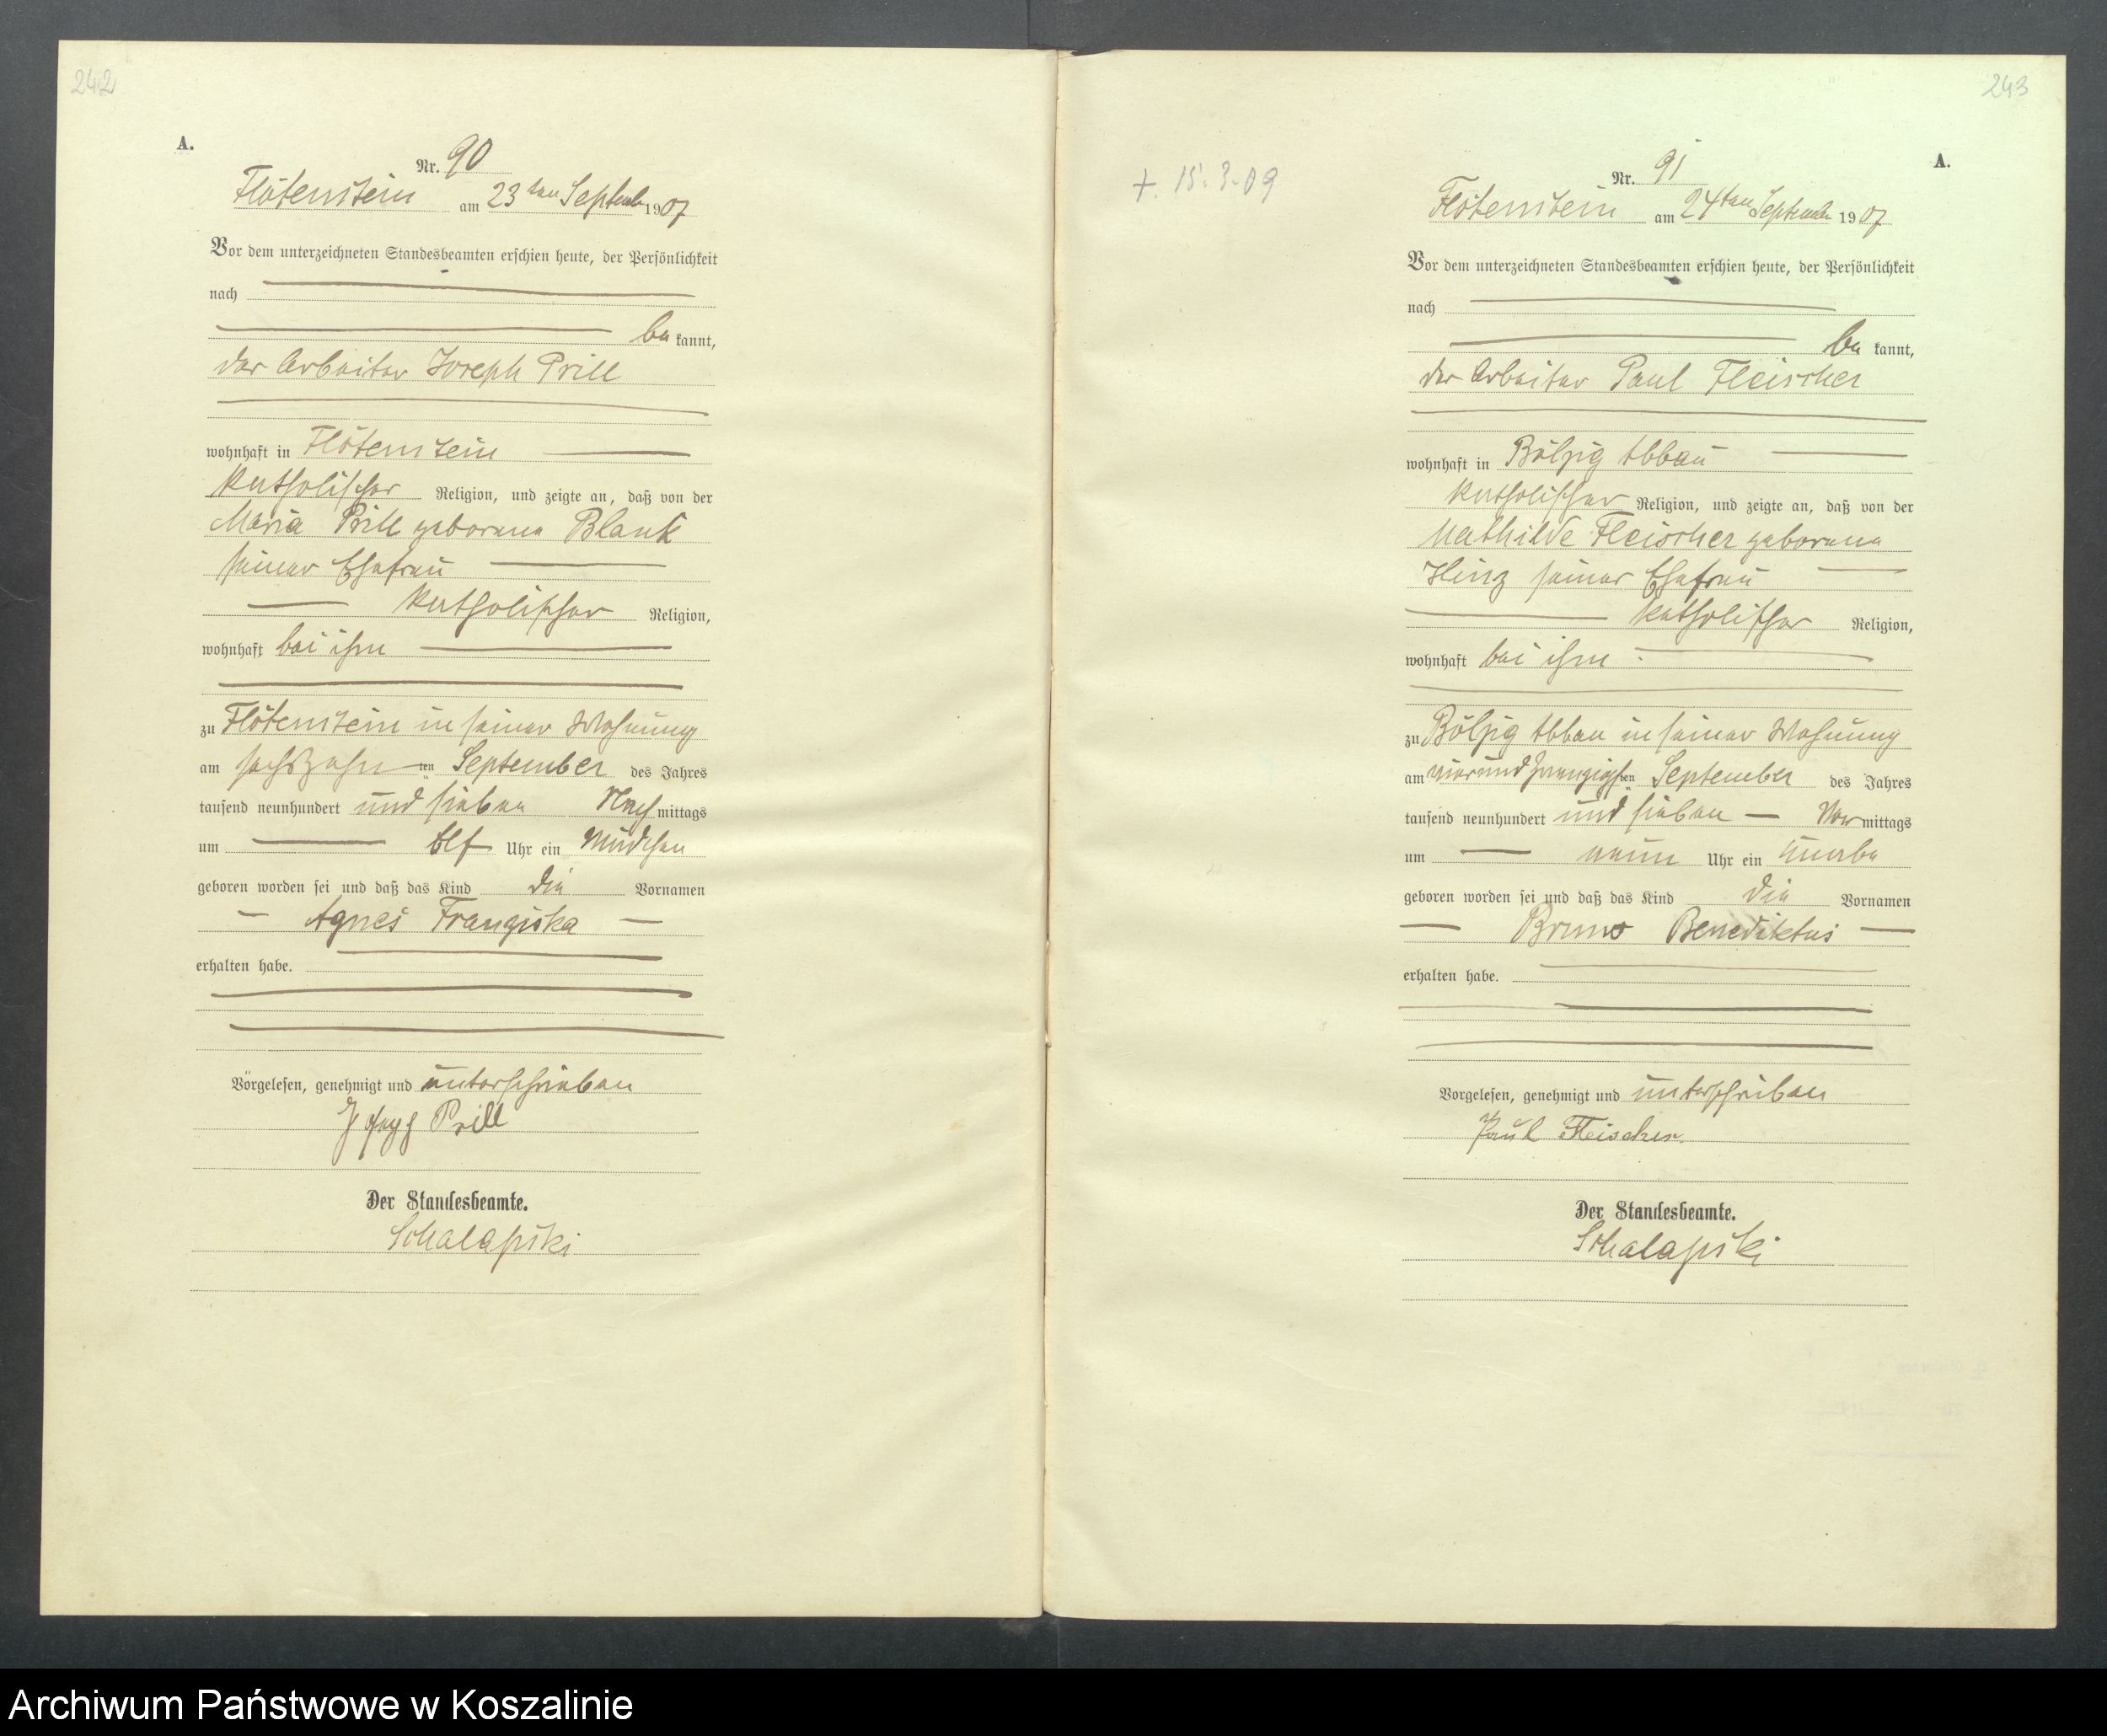 242
A.
Nr. 90
Flötenstein am 23ten Septemb 1907
Vor dem unterzeichneten Standesbeamten erschien heute, der Persönlichkeit
nach
be kannt,
der Arbeiter Joseph Prill
wohnhaft in Flötenstein
katholischer Religion, und zeigte an, daß von der
Maria Prill geborene Blank
seiner Ehefrau
katholischer Religion,
wohnhaft bei ihm
zu Flötenstein in seiner Wohnung
am sechszehn ten September des Jahres
tausend neunhundert und sieben Nach mittags
um Elf Uhr ein Mädchen
geboren worden sei und daß das Kind die Vornamen
Agnes Franziska
erhalten habe.
Vorgelesen, genehmigt und unterschrieben
Joseph Prill
Der Standesbeamte.
Schalapski
243
A.
+. 15.3.09
Nr. 91
Flötenstein am 24ten September 1907
Vor dem unterzeichneten Standesbeamten erschien heute, der Persönlichkeit
nach
be kannt,
der Arbeiter Paul Fleischer
wohnhaft in Bölzig Abbau
katholischer Religion, und zeigte an, daß von der
Mathilde Fleischer geborene
Hinz seiner Ehefrau
katholischer Religion,
wohnhaft bei ihm
zu Bölzig Abbau in seiner Wohnung
am vierundzwanzigsten September des Jahres
tausend neunhundert und sieben Vor mittags
um neun Uhr ein Knabe
geboren worden sei und daß das Kind die Vornamen
Bruno Benediktus
erhalten habe.
Vorgelesen, genehmigt und unterschrieben
Paul Fleischer
Der Standesbeamte.
Schalapski
Archiwum Państwowe w Koszalinie